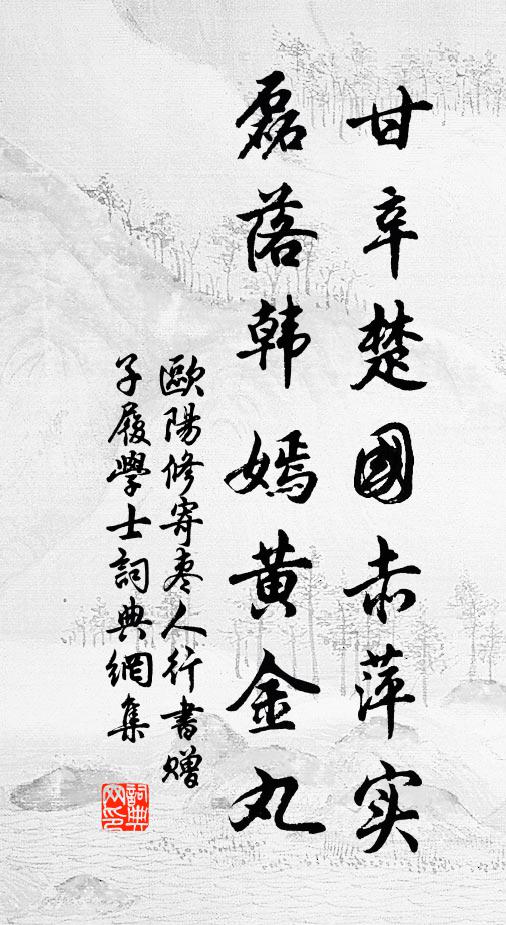 甘辛楚國赤萍实
磊落韩嫣黄金丸
歐陽修寄枣人行書赠
子履學士詞典網集
詞典网印